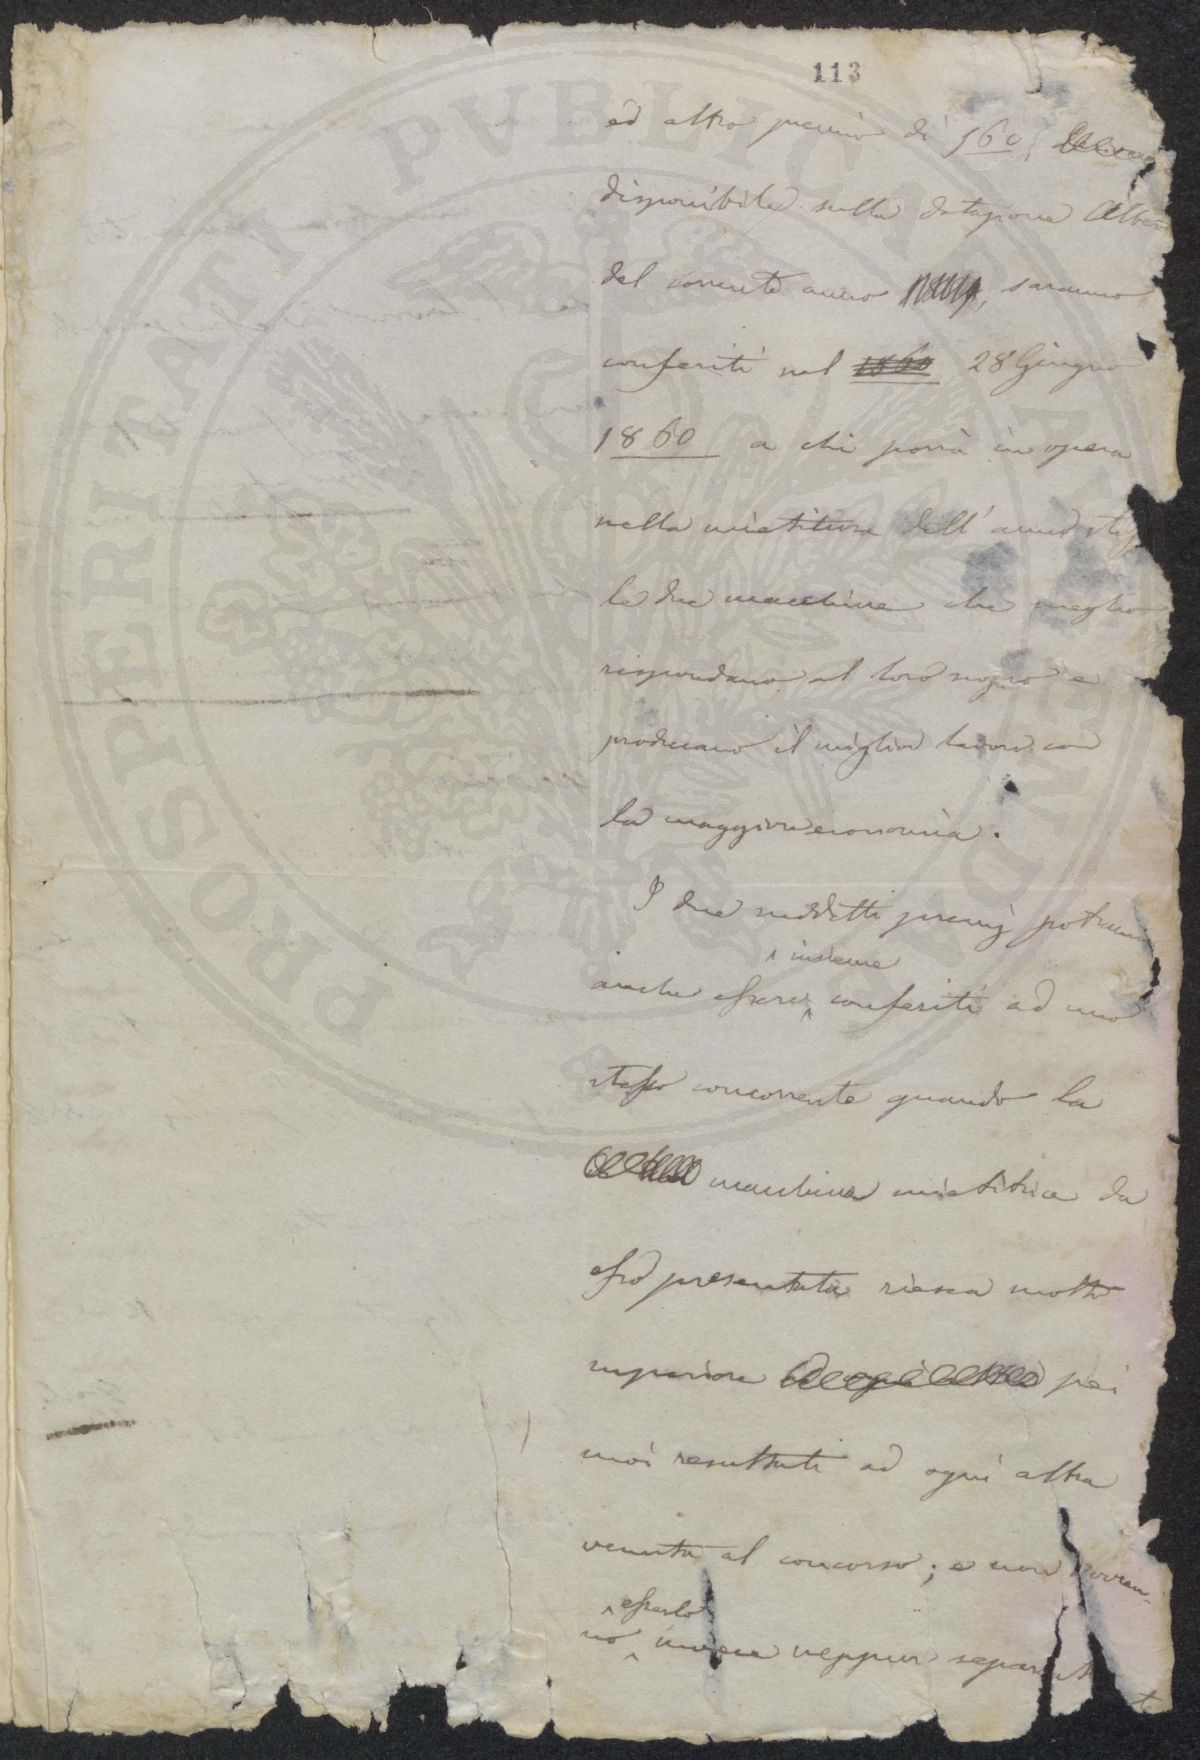 113
ed altro premio di £ 60,
disponibile sulla dotazione Alber
del corrente anno, saranno
conferiti nel 1860 28 Giugno
1860 a chi porrà in opera
nella mietitura dell' anno stesso
le due macchine che meglio
rispondano al loro scopo e
producano il miglior lavoro con
la maggiore economia.
I due suddetti premj potranno
insieme
anche essere conferiti ad uno
stesso concorrente quando la
macchina mietitrice da
esso presentata riesca molto
superiore pei
suoi resultati ad ogni altra
venuta al concorso; e non dovran-
esserlo
no invece neppur separat
te
PROSPERITATI PVBLICAE AVGENDAE